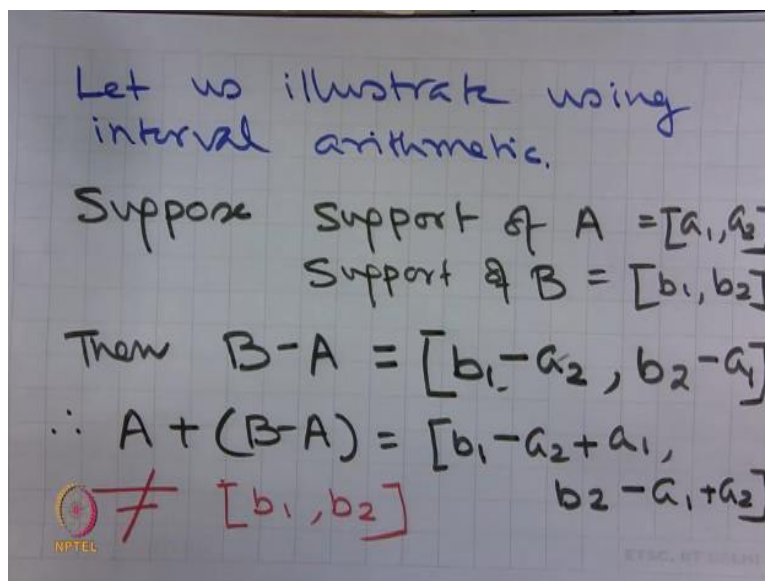 Let us illustrate using
interval arithmetic.
Suppose Support of A = [a₁, a₂]
Support of B = [b₁, b₂]
Then B-A = [b₁-a₂, b₂-a₁]
∴ A + (B-A) = [b₁-a₂+a₁,
b₂-a₁+a₂]
≠ [b₁, b₂]
NPTEL